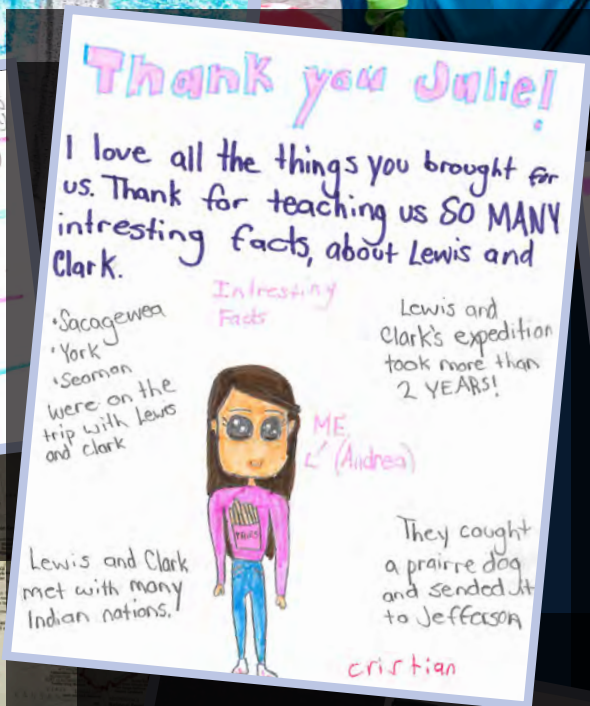 Thank you Julie!
I love all the things you brought for
us. Thank for teaching us SO MANY
intresting facts, about Lewis and
Clark.
Intresting
Facts
•Sacagewea
•York
•Seaman
were on the
trip with Lewis
and Clark
Lewis and
Clark's expedition
took more than
2 YEARS!
ME
(Andrea)
Lewis and Clark
met with many
Indian nations.
They caught
a prairre dog
and sended it
to Jefferson
cristian